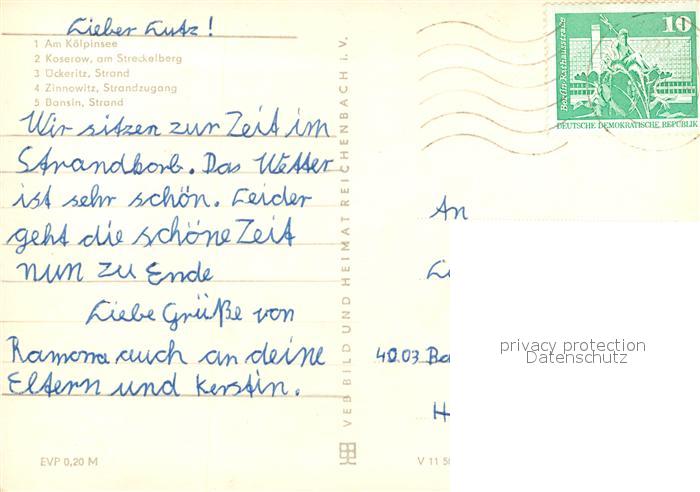 Lieber Lutz!
1 Am Kölpinsee
2 Koserow, am Streckelberg
3 Ückeritz, Strand
4 Zinnowitz, Strandzugang
5 Bansin, Strand
Wir sitzen zur Zeit im
Strandkorb. Das Wetter
ist sehr schön. Leider
geht die schöne Zeit
nun zu Ende
Liebe Grüße von
Ramona auch an deine
Eltern und Kerstin.
EVP 0,20 M
VEB BILD UND HEIMAT REICHENBACH i. V.
10
Berlin, Rathausstraße
DEUTSCHE DEMOKRATISCHE REPUBLIK
An
Li
40.03 Ba
H
V 11 5
privacy protection
Datenschutz